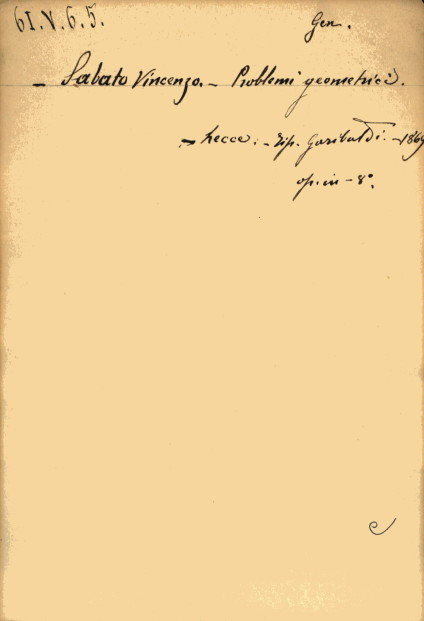 61.V.6.5.
Gen.
- Sabato Vincenzo. - Problemi geometrici.
- Lecce. - Tip. Garibaldi. - 1869
op. in - 8°.